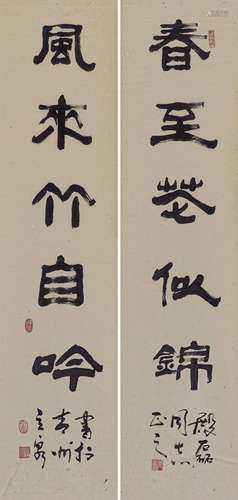 春至花似錦
殿磊
同志
正之
風來竹自吟
書於
青州